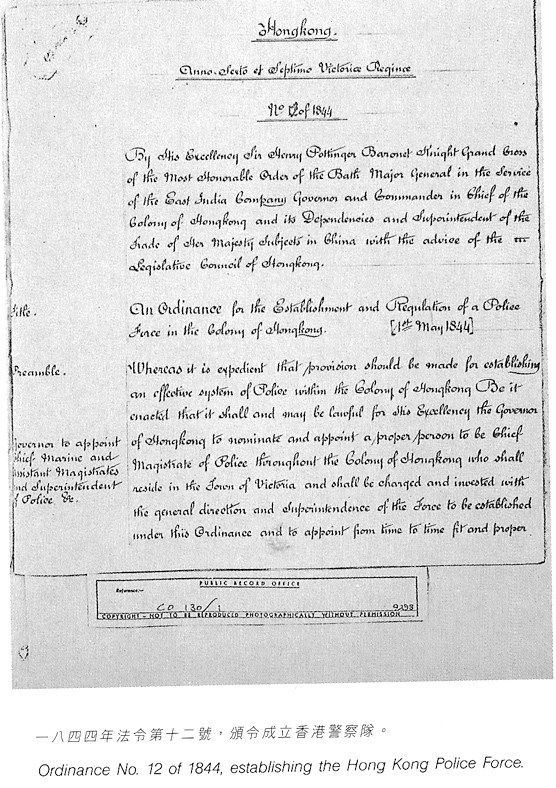 Hongkong.
Anno Sexto et Septimo Victoriæ Reginæ
No 12 of 1844
By His Excellency Sir Henry Pottinger Baronet Knight Grand Cross
of the Most Honorable Order of the Bath Major General in the Service
of the East India Company Governor and Commander in Chief of the
Colony of Hongkong and its Dependencies and Superintendent of the
Trade of Her Majesty Subjects in China with the advice of the
Legislative Council of Hongkong.
Title.
An Ordinance for the Establishment and Regulation of a Police
Force in the Colony of Hongkong. [1st May 1844]
Preamble.
Whereas it is expedient that provision should be made for establishing
an effective system of Police within the Colony of Hongkong Be it
enacted that it shall and may be lawful for His Excellency the Governor
of Hongkong to nominate and appoint a proper person to be Chief
Magistrate of Police throughout the Colony of Hongkong who shall
reside in the Town of Victoria and shall be charged and invested with
the general direction and Superintendence of the Force to be established
under this Ordinance and to appoint from time to time fit and proper
Governor to appoint
Chief Marine and
Assistant Magistrates
and Superintendent
of Police &c.
PUBLIC RECORD OFFICE
Reference:-
CO 130/1
COPYRIGHT - NOT TO BE REPRODUCED PHOTOGRAPHICALLY WITHOUT PERMISSION
一八四四年法令第十二號，頒令成立香港警察隊。
Ordinance No. 12 of 1844, establishing the Hong Kong Police Force.